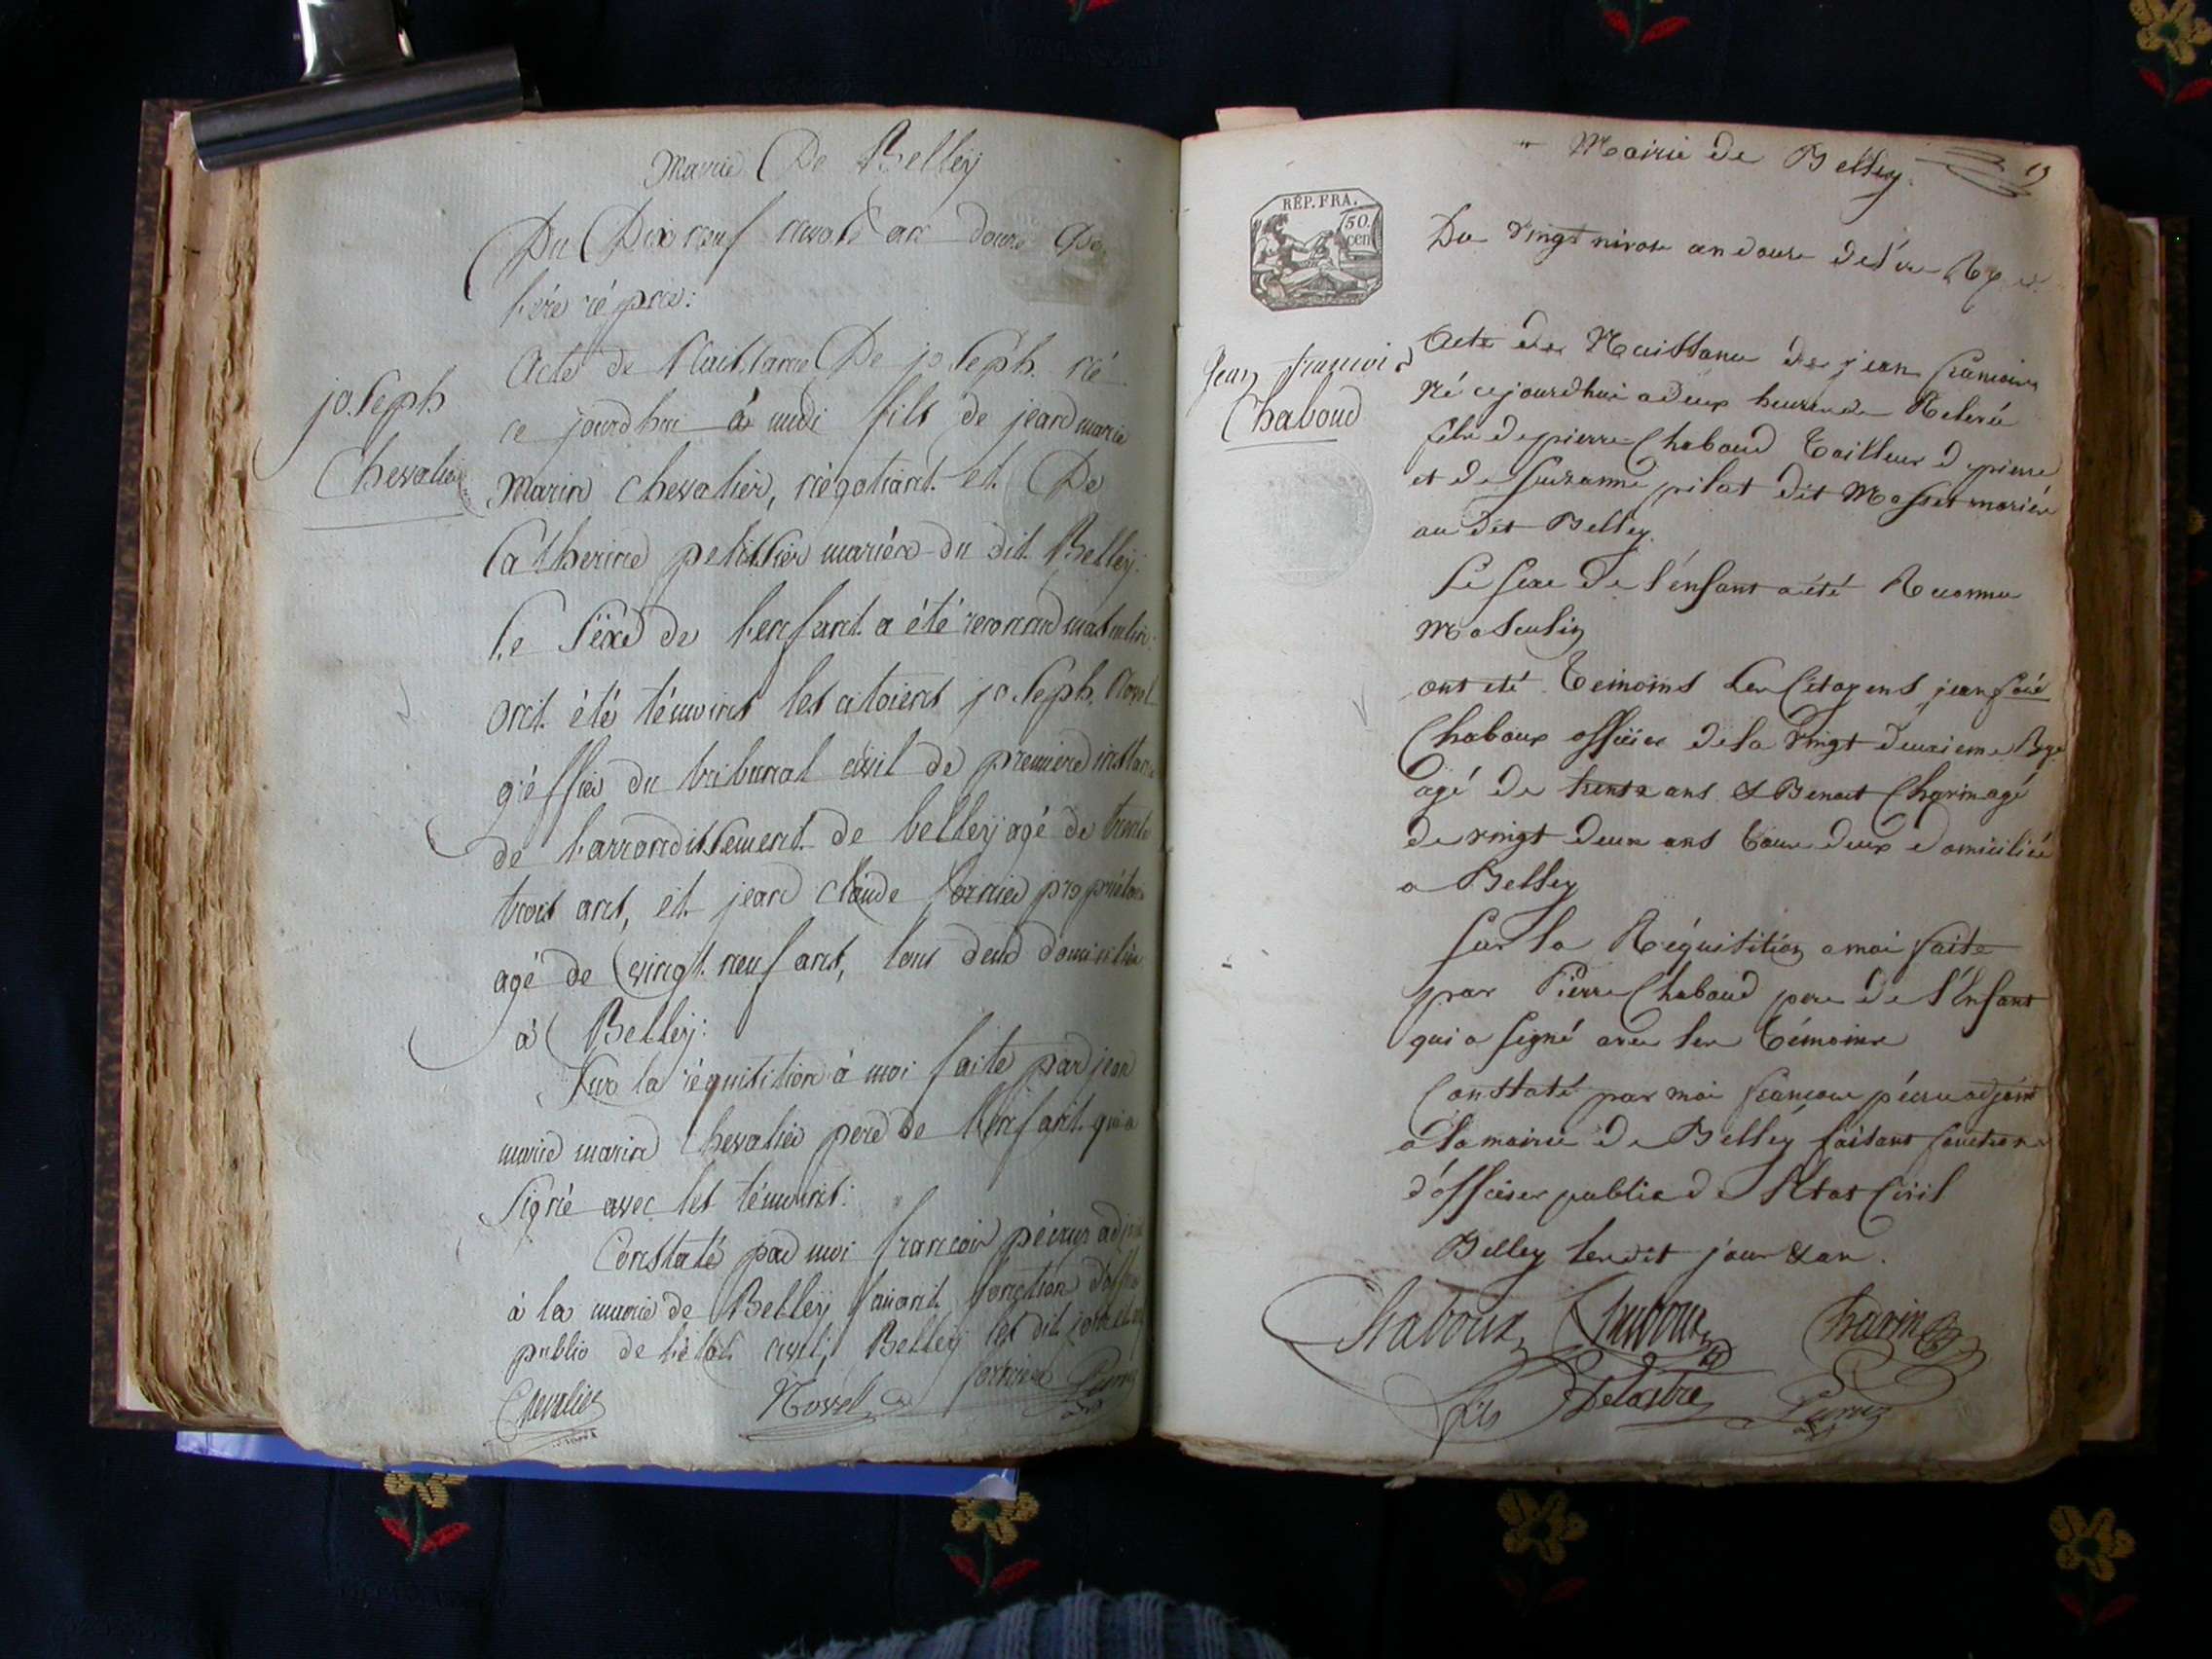 Mairie De Belley
Du Dix neuf nivose an douze De
l'ère répce:
joseph
Chevalier
Acte de Naissance De joseph né
ce jourdhui à midi fils de jean marie
Marin chevalier, négotiant et De
Catherine pelissier mariés du dit Belley:
Le séxe de l'enfant a été reconnu masculin:
ont été témoins les citoiens joseph
gréffier du tribunal civil de premiere instance
de l'arrondissement de belley agé de trente
trois ans, et jean claude propriétaire
agé de vingt neuf ans, tous deux domiciliés
à Belley:
Sur la réquisition à moi faite par jean
marie marin chevalier pere de l'enfant qui a
signé avec les témoins:
Constaté par moi francois adjoint
à la mairie de Belley faisant fonction d'officier
public de l'état civil, Belley les dit jour et an
Chevalier Rossel
Mairie de Belley 19
RÉP. FRA.
50. cen
Du vingt nivose an douze de l'ere Rep
Jean francois
Chaboud
Acte de Naissance de jean francois
né cejourdhui a deux heures de Relevée
fils de pierre Chaboud Tailleur de pierre
et de Suzanne pilat dit Masset mariés
au dit Belley.
Le sexe de l'énfant a été Reconnu
Masculin
ont été Temoins Les Citoyens jean
Chaboux officier de la vingt deuxieme
agé de trente ans & Benoit Charin agé
de vingt deux ans tous deux domiciliés
a Belley
Sur la Réquisition a moi faite
par Pierre Chaboud pere de l'Enfant
qui a signé avec les Témoins
Constaté par moi francois adjoint
a la mairie de Belley faisant fonctions
d'officier public de l'Etat Civil
Belley les dit jour & an.
Chaboux Chaboux Charin
fils Delastre